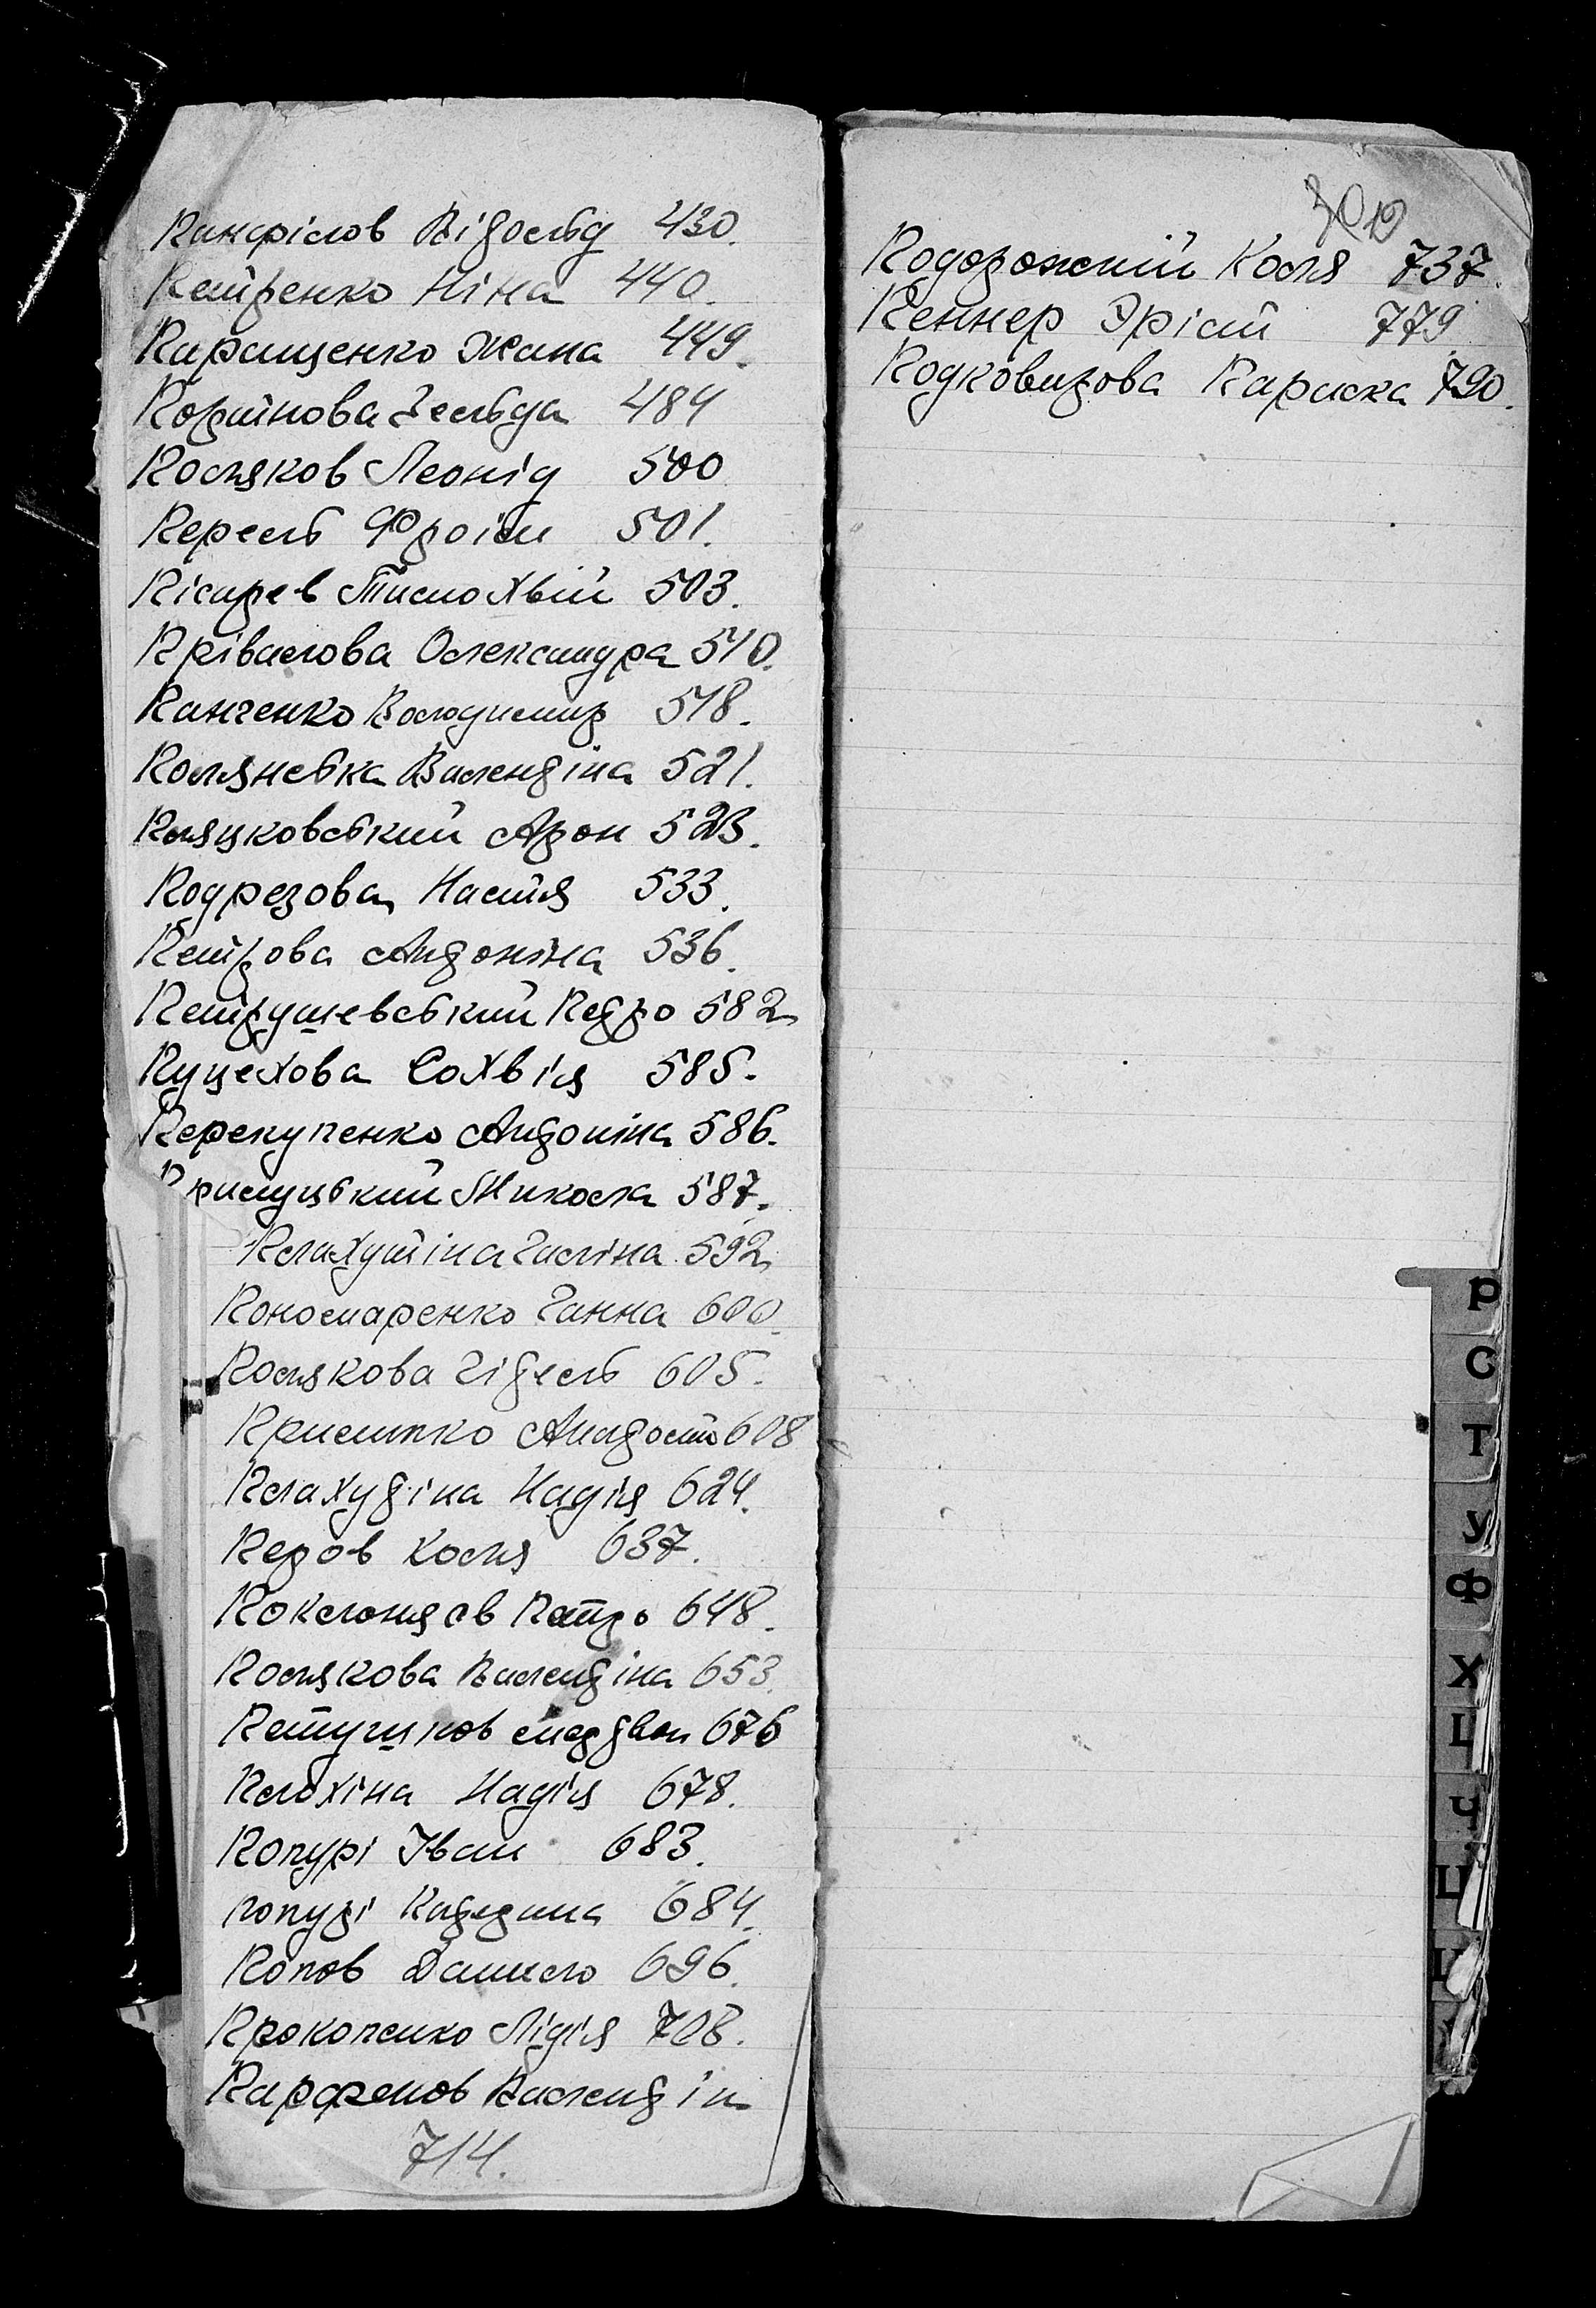 Панфілов Відольд 430.
Петренко Ніна 440.
Паращенко Жана 449.
Портнова Зельда 484
Поляков Леонід 500
Перель Фроїм 501.
Пісарев Тимохвій 503.
Прівалова Олександра 510.
Панченко Володимир 518.
Полянська Валендіна 521.
Пляцковський Арон 523.
Подрезова Настя 533.
Петрова Андоніна 536.
Петрушевський Педро 582
Пуцехова Сохвія 585.
Перекупенко Андоніна 586.
Прилуцький Микола 587.
Плахутіна Галіна 592
Пономаренко Ганна 600.
Полякова Гідель 605.
Пришпко 608
Плахудіна Надія 624.
Перов Коля 637.
Поклоняєв Петро 648.
Полякова Валендіна 653.
Петушков 676
Плохіна Надія 678.
Попурі Іван 683.
попурі Кадерина 684.
Попов Данило 696.
Прокопенко Лідія 708.
Парфенов Валендін
714.
Подорожній Коля 737.
Пеннер Эріст 779
Подковирова Лариска 790.
Р
С
Т
У
Ф
Х
Ц
Ч